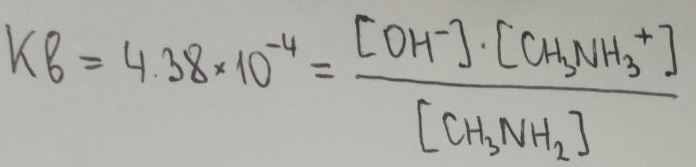 Kb = 4.38×10⁻⁴ = [OH⁻]·[CH₃NH₃⁺] / [CH₃NH₂]